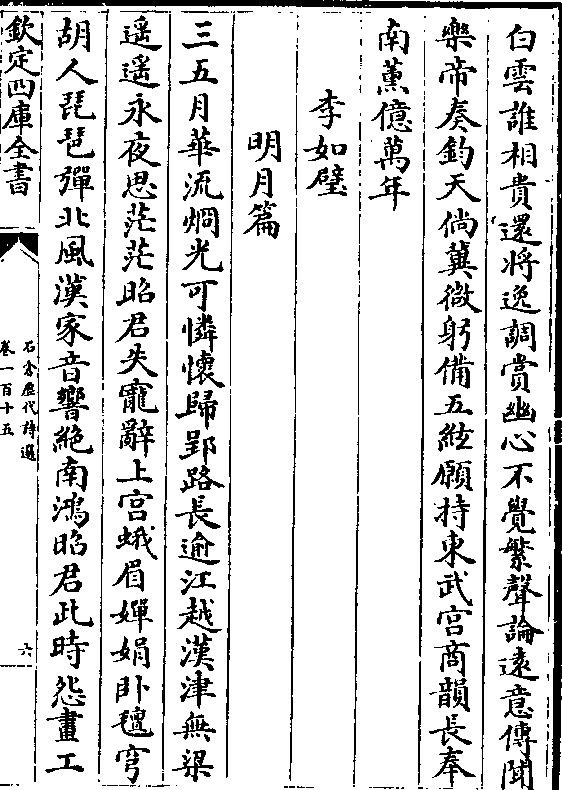 白雲誰相貴還將逸調賞幽心不覺繁聲論遠意傳聞
樂帝奏鈞天倘冀微躬備五絃願持東武宮商韻長奉
南薰億萬年
李如璧
明月篇
三五月華流烱光可憐懷歸郢路長逾江越漢津無梁
遥遥永夜思茫茫昭君失寵辭上宫蛾眉嬋娟卧氊穹
胡人琵琶彈北風漢家音響絶南鴻昭君此時怨畫工
欽定四庫全書
石倉歷代詩選
卷一百十五
六